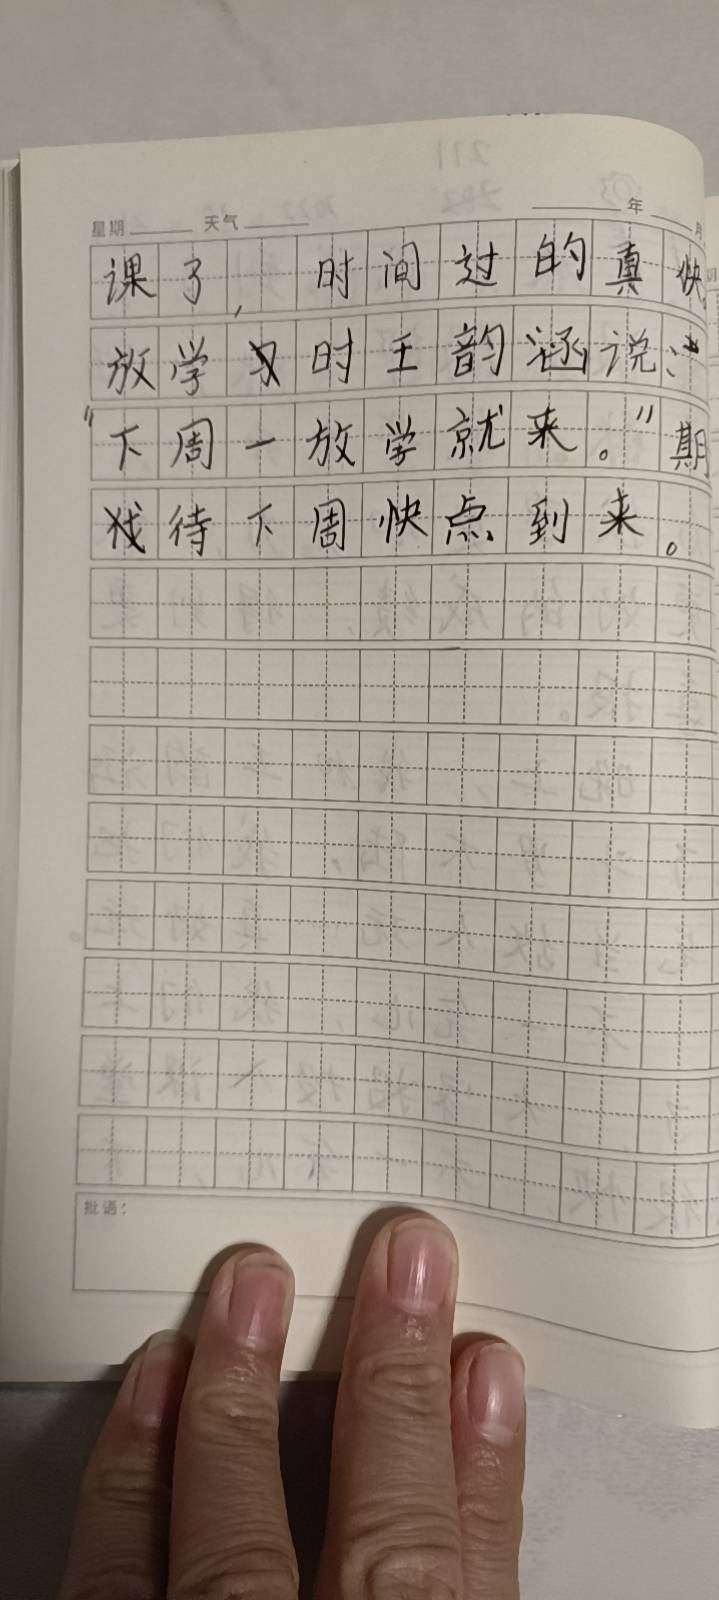 星期 天气 年 月
课了，时间过的真快。
放学时王韵涵说：
“下周一放学就来。”期
待下周快点到来。
批语：